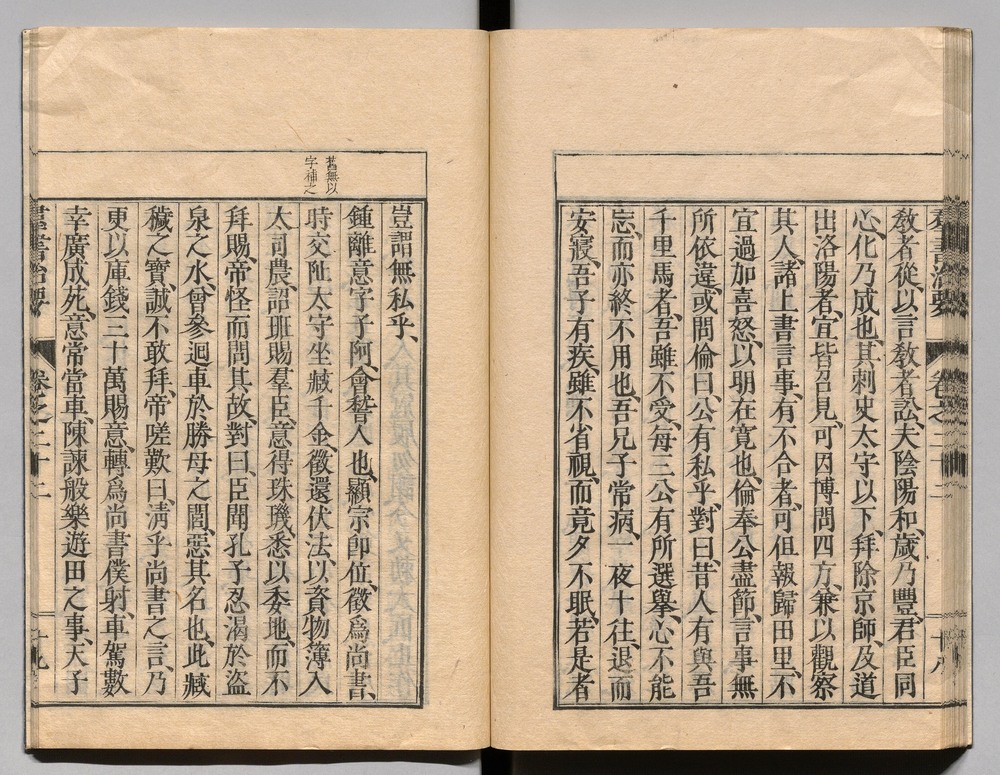 羣書治要 卷之二十二 十八
敎者從、以言敎者訟、夫陰陽和、歲乃豐、君臣同
心、化乃成也、其刺史太守以下、拜除京師、及道
出洛陽者、宜皆召見、可因博問四方、兼以觀察
其人、諸上書言事、有不合者、可但報歸田里、不
宜過加喜怒、以明在寬也、倫奉公盡節、言事無
所依違、或問倫曰、公有私乎、對曰、昔人有與吾
千里馬者、吾雖不受、每三公有所選擧、心不能
忘、而亦終不用也、吾兄子常病、一夜十往、退而
安寢、吾子有疾、雖不省視、而竟夕不眠、若是者
豈謂無私乎、
鍾離意字子阿、會稽人也、顯宗卽位、徵爲尚書、
時交阯太守坐臧千金、徵還伏法、以資物簿入
太司農、詔班賜羣臣、意得珠璣、悉以委地、而不
拜賜、帝怪而問其故、對曰、臣聞孔子忍渴於盜
泉之水、曾參迴車於勝母之閭、惡其名也、此臧
穢之寶、誠不敢拜、帝嗟歎曰、清乎尚書之言、乃
更以庫錢三十萬賜意、轉爲尚書僕射、車駕數
幸廣成苑、意常當車、陳諫般樂遊田之事、天子
舊無以
字補之
羣書治要 卷之二十二 十九